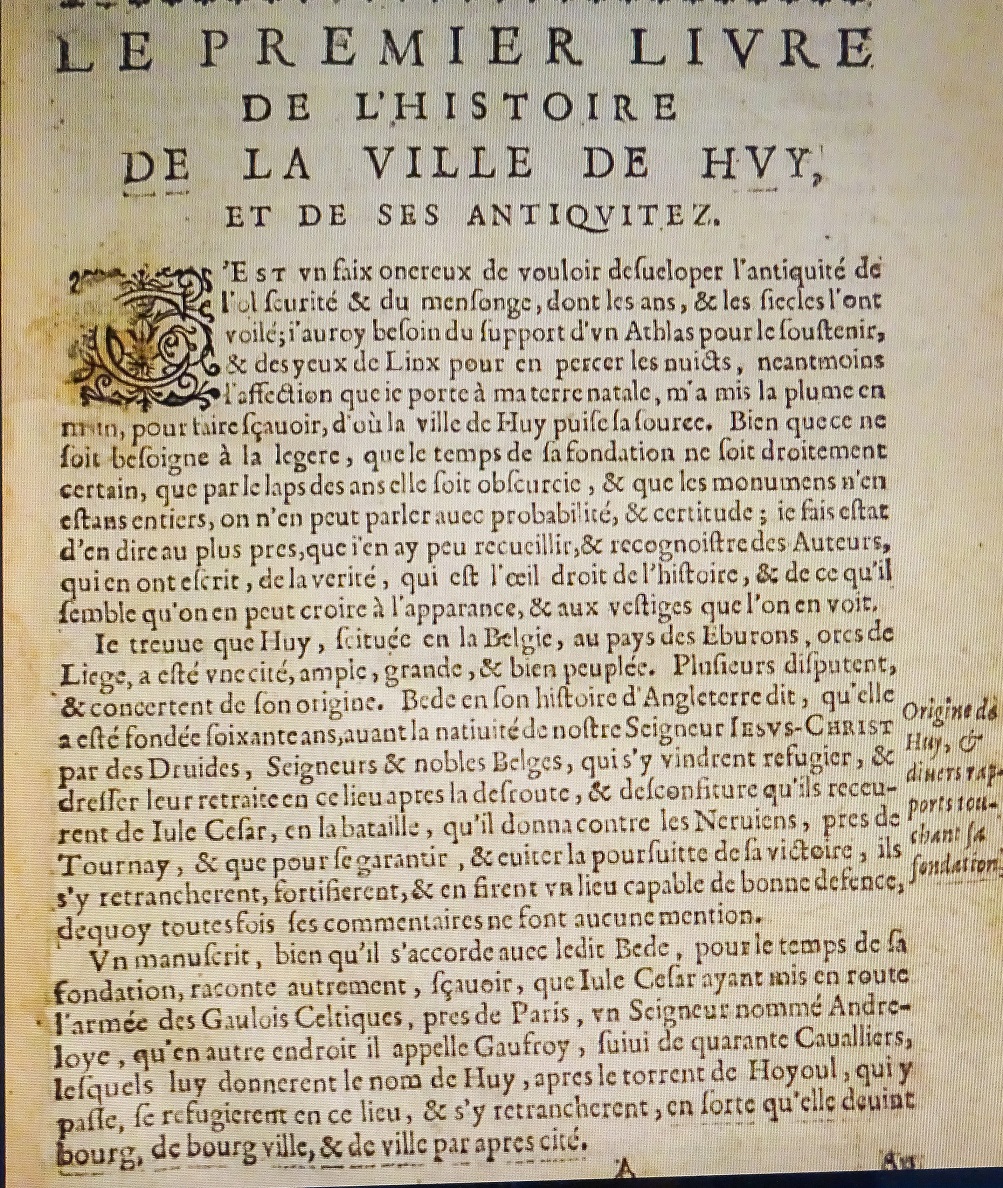 LE PREMIER LIVRE
DE L'HISTOIRE
DE LA VILLE DE HVY,
ET DE SES ANTIQVITEZ.
C'EST vn faix onereux de vouloir deſueloper l'antiquité de
l'obſcurité & du menſonge, dont les ans, & les ſiecles l'ont
voilé; i'auroy beſoin du ſupport d'vn Athlas pour le ſouſtenir,
& des yeux de Linx pour en percer les nuicts, neantmoins
l'affection que ie porte à ma terre natale, m'a mis la plume en
main, pour faire ſçauoir, d'où la ville de Huy puiſe ſa ſource. Bien que ce ne
ſoit beſoigne à la legere, que le temps de ſa fondation ne ſoit droitement
certain, que par le laps des ans elle ſoit obſcurcie, & que les monumens n'en
eſtans entiers, on n'en peut parler auec probabilité, & certitude; ie fais eſtat
d'en dire au plus pres, que i'en ay peu recueillir, & recognoiſtre des Auteurs,
qui en ont eſcrit, de la verité, qui eſt l'œil droit de l'hiſtoire, & de ce qu'il
ſemble qu'on en peut croire à l'apparance, & aux veſtiges que l'on en voit.
Ie treuue que Huy, ſcituée en la Belgie, au pays des Eburons, ores de
Liege, a eſté vne cité, ample, grande, & bien peuplée. Pluſieurs diſputent,
& concertent de ſon origine. Bede en ſon hiſtoire d'Angleterre dit, qu'elle
a eſté fondée ſoixante ans, auant la natiuité de noſtre Seigneur IESVS-CHRIST
par des Druides, Seigneurs & nobles Belges, qui s'y vindrent refugier, &
dreſſer leur retraite en ce lieu apres la deſroute, & deſconfiture qu'ils receu-
rent de Iule Ceſar, en la bataille, qu'il donna contre les Neruiens, pres de
Tournay, & que pour ſe garantir, & euiter la pourſuitte de ſa victoire, ils
s'y retrancherent, fortifierent, & en firent vn lieu capable de bonne defence,
dequoy toutesfois ſes commentaires ne font aucune mention.
Origine de
Huy, &
diuers rap-
ports tou-
chant ſa
fondation
Vn manuſcrit, bien qu'il s'accorde auec ledit Bede, pour le temps de ſa
fondation, raconte autrement, ſçauoir, que Iule Ceſar ayant mis en route
l'armée des Gaulois Celtiques, pres de Paris, vn Seigneur nommé Andre-
loye, qu'en autre endroit il appelle Gaufroy, ſuiui de quarante Caualliers,
leſquels luy donnerent le nom de Huy, apres le torrent de Hoyoul, qui y
paſſe, ſe refugierent en ce lieu, & s'y retrancherent, en ſorte qu'elle deuint
bourg, de bourg ville, & de ville par apres cité.
A